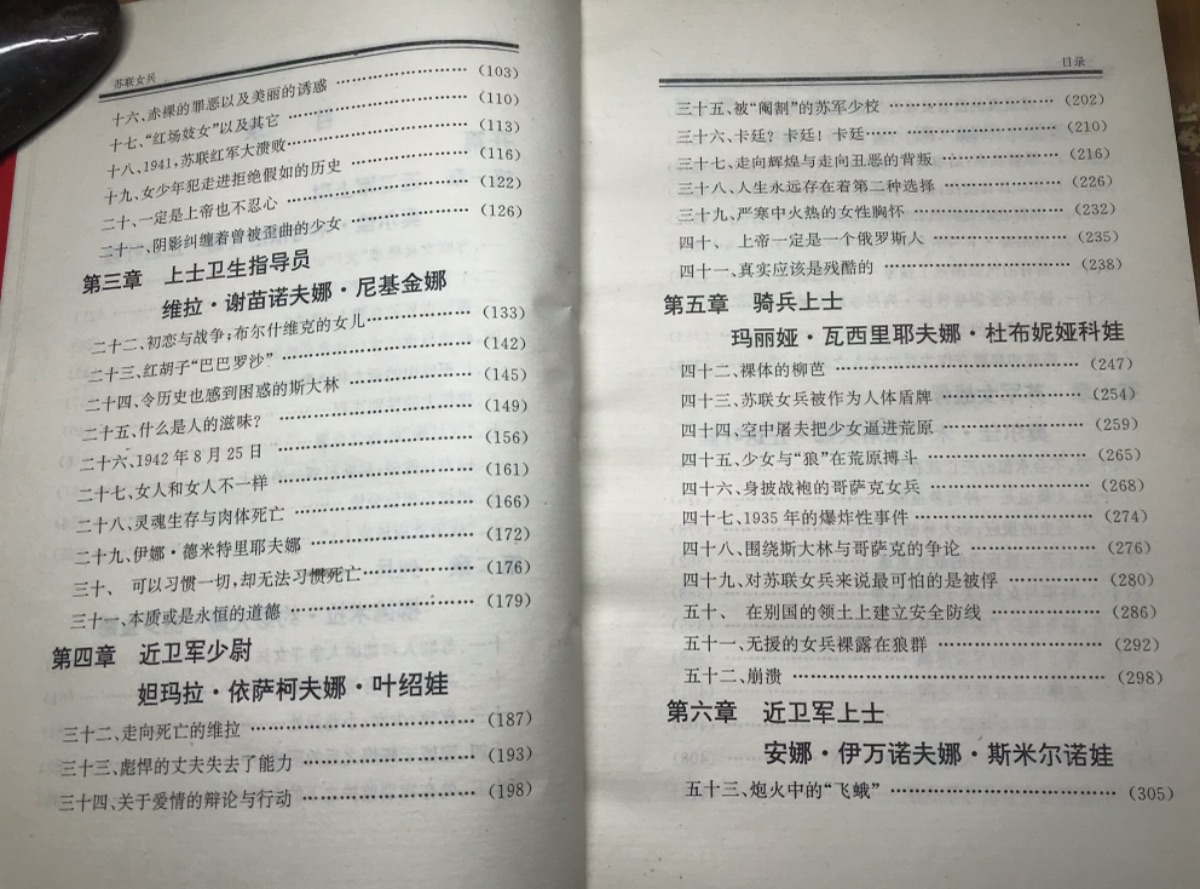 苏联女兵
十六、赤裸的罪恶以及美丽的诱惑 ……………… (103)
十七、“红场妓女”以及其它 ……………… (110)
十八、1941，苏联红军大溃败……………… (113)
十九、女少年犯走进拒绝假如的历史 ……………… (116)
二十、一定是上帝也不忍心 ……………… (122)
二十一、阴影纠缠着曾被歪曲的少女 ……………… (126)
第三章 上士卫生指导员
维拉·谢苗诺夫娜·尼基金娜
二十二、初恋与战争；布尔什维克的女儿……………… (133)
二十三、红胡子“巴巴罗沙” ……………… (142)
二十四、令历史也感到困惑的斯大林 ……………… (145)
二十五、什么是人的滋味？ ……………… (149)
二十六、1942年8月25日 ……………… (156)
二十七、女人和女人不一样 ……………… (161)
二十八、灵魂生存与肉体死亡 ……………… (166)
二十九、伊娜·德米特里耶夫娜 ……………… (172)
三十、 可以习惯一切，却无法习惯死亡……………… (176)
三十一、本质或是永恒的道德 ……………… (179)
第四章 近卫军少尉
妲玛拉·依萨柯夫娜·叶绍娃
三十二、走向死亡的维拉 ……………… (187)
三十三、彪悍的丈夫失去了能力 ……………… (193)
三十四、关于爱情的辩论与行动 ……………… (198)
目录
三十五、被“阉割”的苏军少校 ……………… (202)
三十六、卡廷？卡廷！卡廷…… ……………… (210)
三十七、走向辉煌与走向丑恶的背叛 ……………… (216)
三十八、人生永远存在着第二种选择 ……………… (226)
三十九、严寒中火热的女性胸怀 ……………… (232)
四十、 上帝一定是一个俄罗斯人 ……………… (235)
四十一、真实应该是残酷的 ……………… (238)
第五章 骑兵上士
玛丽娅·瓦西里耶夫娜·杜布妮娅科娃
四十二、裸体的柳芭 ……………… (247)
四十三、苏联女兵被作为人体盾牌 ……………… (254)
四十四、空中屠夫把少女逼进荒原 ……………… (259)
四十五、少女与“狼”在荒原搏斗 ……………… (265)
四十六、身披战袍的哥萨克女兵 ……………… (268)
四十七、1935年的爆炸性事件 ……………… (274)
四十八、围绕斯大林与哥萨克的争论 ……………… (276)
四十九、对苏联女兵来说最可怕的是被俘 ……………… (280)
五十、 在别国的领土上建立安全防线 ……………… (286)
五十一、无援的女兵裸露在狼群 ……………… (292)
五十二、崩溃 ……………… (298)
第六章 近卫军上士
安娜·伊万诺夫娜·斯米尔诺娃
五十三、炮火中的“飞蛾” ……………… (305)